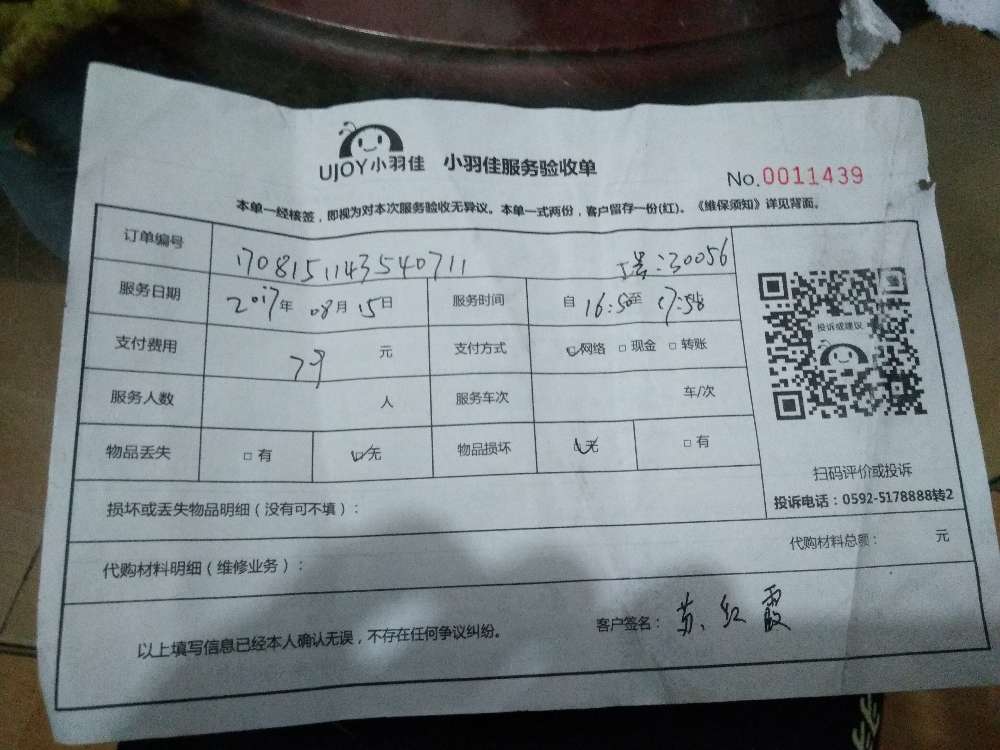 UJOY小羽佳 小羽佳服务验收单
No.0011439
本单一经核签，即视为对本次服务验收无异议。本单一式两份，客户留存一份(红)。《维保须知》详见背面。
订单编号 1708151143540711 工号:30056
服务日期 2017年 08月 15日 服务时间 自 16:50至 17:58
支付费用 79 元 支付方式 网络 □ 现金 □ 转账
服务人数 人 服务车次 车/次
物品丢失 □ 有 无 物品损坏 无 □ 有
投诉或建议
扫码评价或投诉
投诉电话：0592-5178888转2
损坏或丢失物品明细（没有可不填）：
代购材料明细（维修业务）： 代购材料总额： 元
以上填写信息已经本人确认无误，不存在任何争议纠纷。 客户签名： 苏红霞